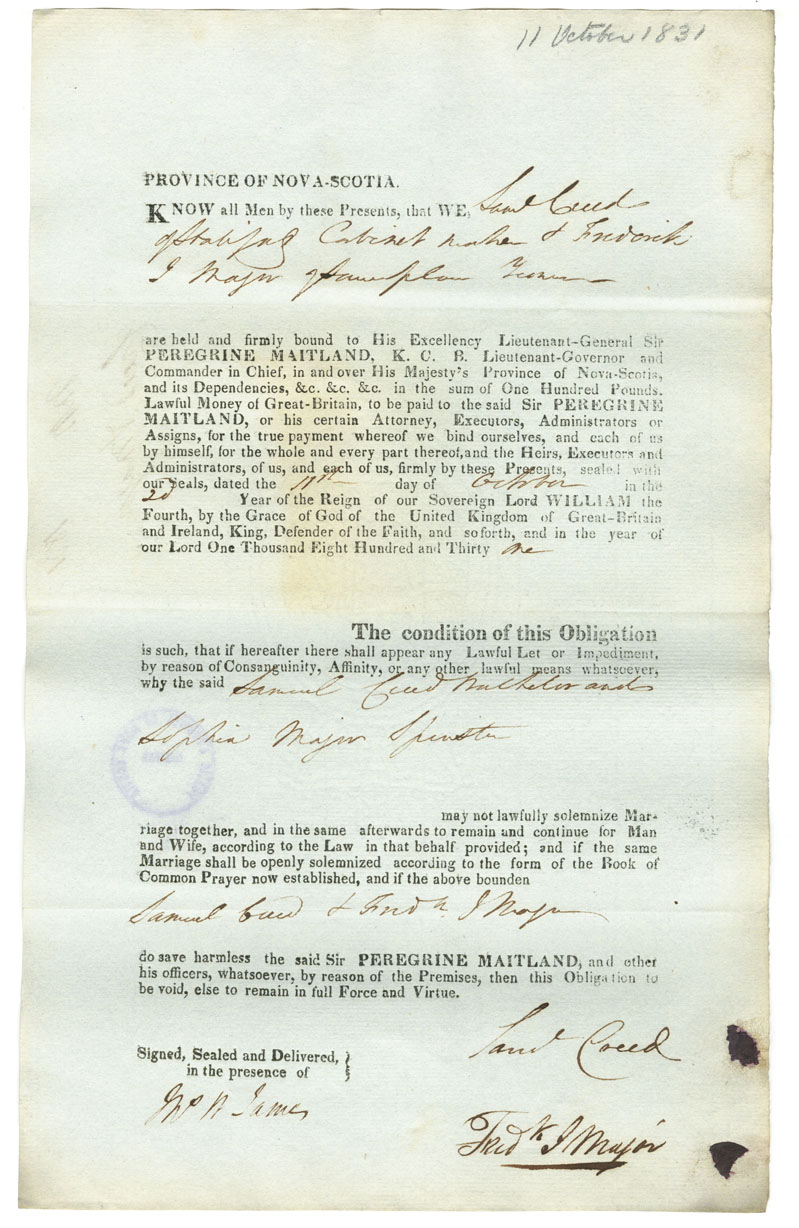 11 October 1831
PROVINCE OF NOVA-SCOTIA.
KNOW all Men by these Presents, that WE, Saml Creed
of Halifax Cabinet maker & Frederick
J Major of same place
are held and firmly bound to His Excellency Lieutenant-General Sir
PEREGRINE MAITLAND, K. C. B. Lieutenant-Governor and
Commander in Chief, in and over His Majesty's Province of Nova-Scotia,
and its Dependencies, &c. &c. &c. in the sum of One Hundred Pounds.
Lawful Money of Great-Britain, to be paid to the said Sir PEREGRINE
MAITLAND, or his certain Attorney, Executors, Administrators or
Assigns, for the true payment whereof we bind ourselves, and each of us
by himself, for the whole and every part thereof,and the Heirs, Executors and
Administrators, of us, and each of us, firmly by these Presents, sealed with
our Seals, dated the 11th day of October in the
2d Year of the Reign of our Sovereign Lord WILLIAM the
Fourth, by the Grace of God of the United Kingdom of Great-Britain
and Ireland, King, Defender of the Faith, and soforth, and in the year of
our Lord One Thousand Eight Hundred and Thirty one
The condition of this Obligation
is such, that if hereafter there shall appear any Lawful Let or Impediment,
by reason of Consanguinity, Affinity, or any other lawful means whatsoever,
why the said Samuel Creed Batchelor and
Sophia Major Spinster
may not lawfully solemnize Mar-
riage together, and in the same afterwards to remain and continue for Man
and Wife, according to the Law in that behalf provided; and if the same
Marriage shall be openly solemnized according to the form of the Book of
Common Prayer now established, and if the above bounden
Samuel Creed & Fredk J Major
do save harmless the said Sir PEREGRINE MAITLAND, and other
his officers, whatsoever, by reason of the Premises, then this Obligation to
be void, else to remain in full Force and Virtue.
Signed, Sealed and Delivered,
in the presence of
James
Saml Creed
Fredk J Major